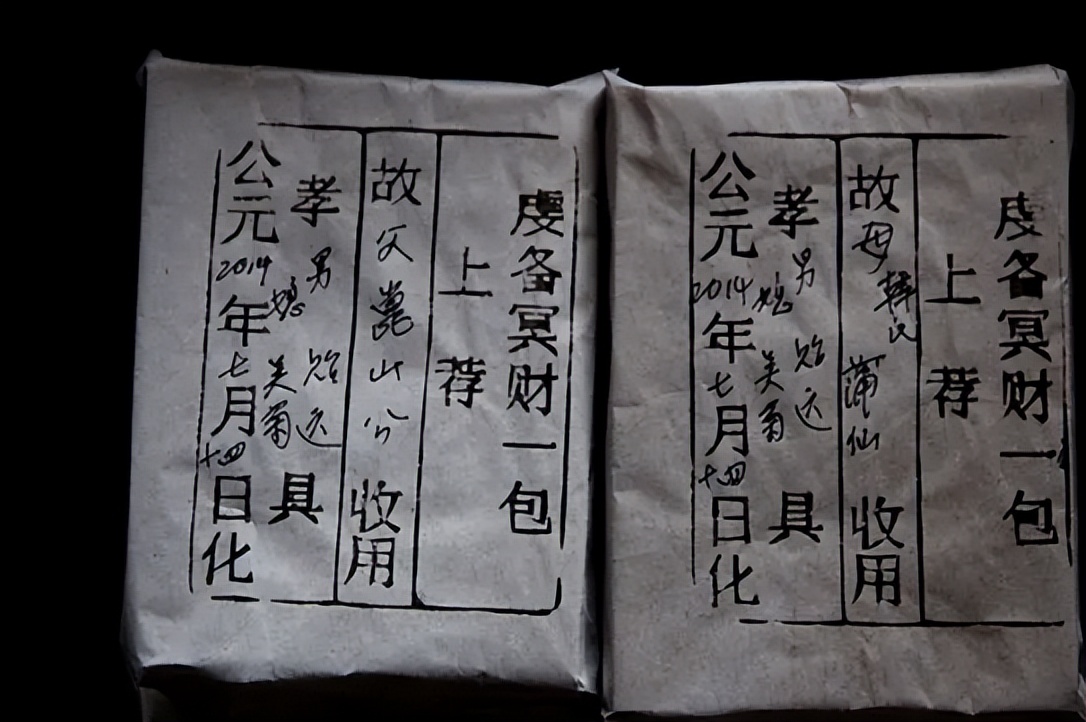 虔备冥财一包
上荐
故父山公收用
孝男贻远具
媳美菊
公元2014年七月十四日化
虔备冥财一包
上荐
故母氏蒲仙收用
孝男贻远具
媳美菊
公元2014年七月十四日化